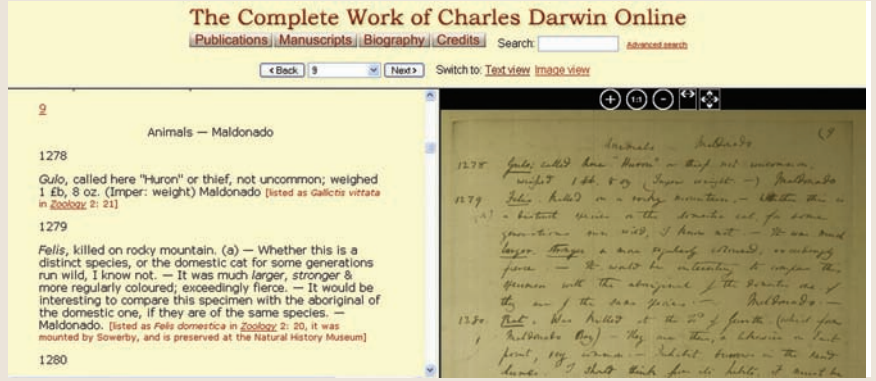 The Complete Work of Charles Darwin Online
Publications Manuscripts Biography Credits Search: Advanced search
<Back 9 Next> Switch to: Text view Image view
9
Animals — Maldonado
1278
Gulo, called here "Huron" or thief, not uncommon; weighed
1 £b, 8 oz. (Imper: weight) Maldonado [listed as Gallictis vittata
in Zoology 2: 21]
1279
Felis, killed on rocky mountain. (a) — Whether this is a
distinct species, or the domestic cat for some generations
run wild, I know not. — It was much larger, stronger &
more regularly coloured; exceedingly fierce. — It would be
interesting to compare this specimen with the aboriginal of
the domestic one, if they are of the same species. —
Maldonado. [listed as Felis domestica in Zoology 2: 20, it was
mounted by Sowerby, and is preserved at the Natural History Museum]
1280
+ 1:1 -
(9
Animals Maldonado
1278 Gulo, called here "Huron" or thief, not uncommon,
weighed 1 £b. 8 oz (Imper weight —) Maldonado
1279 Felis. killed on a rocky mountain. — Whether this is
(a) a distinct species or the domestic cat, for some
generations run wild, I know not. — It was much
larger, stronger & more regularly coloured, exceedingly
fierce. — It would be interesting to compare this
specimen with the aboriginal of the domestic one if
they are of the same species. — Maldonado. —
1280 Rat. Was killed at the
Maldonado Bay) — They are there, & likewise on East
point, very common. — Inhabit burrows in the sand
I should think from its habits, it must be